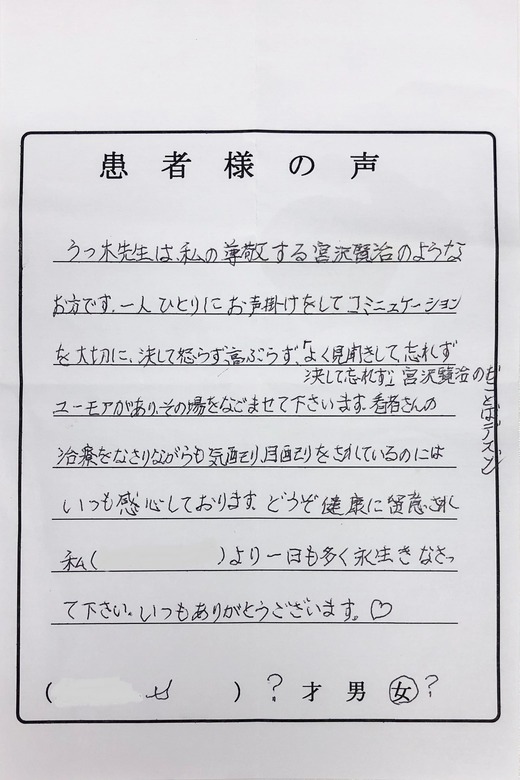 患者様の声
うつ木先生は、私の尊敬する宮沢賢治のような
お方です。一人ひとりにお声掛けをしてコミニュケーション
を大切に、決して怒らず高ぶらず、「よく見聞きして、忘れず
決して忘れず」宮沢賢治の
ことばデスヨ
ユーモアがあり、その場をなごませて下さいます。看者さんの
治療をなさりながらも気配り、目配りをされているのには
いつも感心しております。どうぞ健康に留意され
私( )より一日も多く永生きなさっ
て下さい。いつもありがとうございます。♡
( せ ) ? 才 男 女 ?